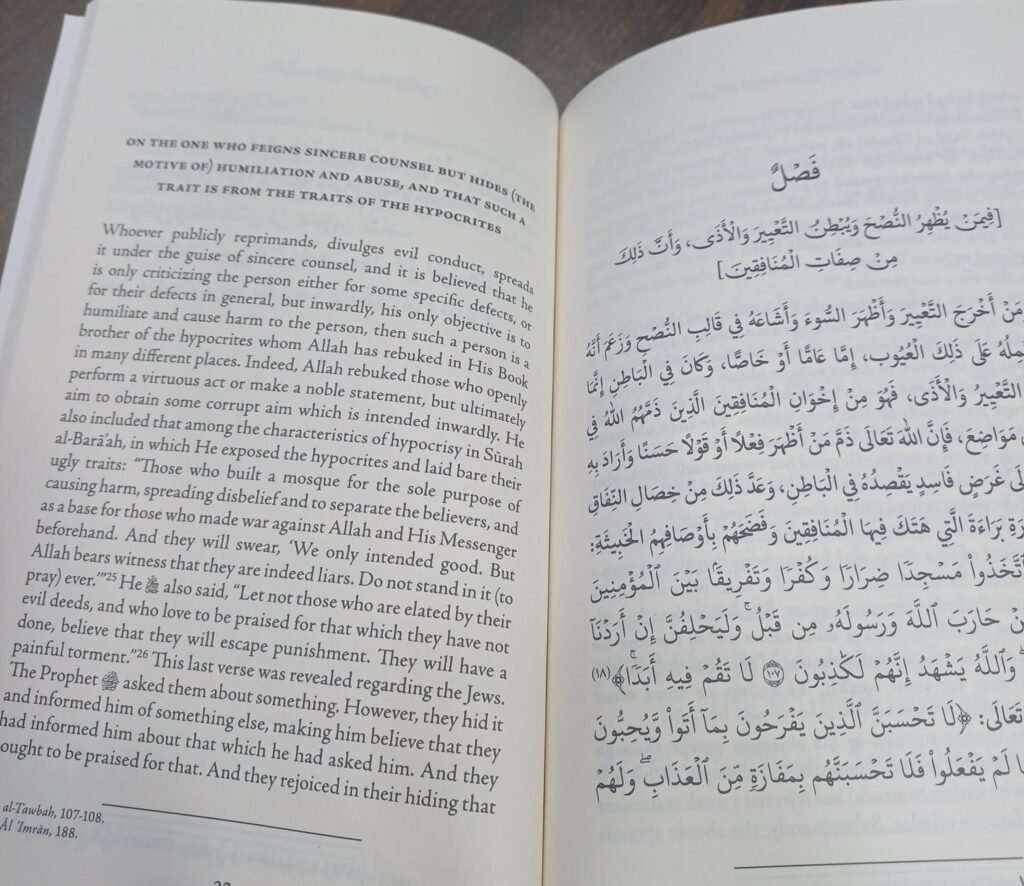 ON THE ONE WHO FEIGNS SINCERE COUNSEL BUT HIDES (THE
MOTIVE OF) HUMILIATION AND ABUSE, AND THAT SUCH A
TRAIT IS FROM THE TRAITS OF THE HYPOCRITES
Whoever publicly reprimands, divulges evil conduct, spreads
it under the guise of sincere counsel, and it is believed that he
is only criticizing the person either for some specific defects, or
for their defects in general, but inwardly, his only objective is to
humiliate and cause harm to the person, then such a person is a
brother of the hypocrites whom Allah has rebuked in His Book
in many different places. Indeed, Allah rebuked those who openly
perform a virtuous act or make a noble statement, but ultimately
aim to obtain some corrupt aim which is intended inwardly. He
also included that among the characteristics of hypocrisy in Sūrah
al-Barā'ah, in which He exposed the hypocrites and laid bare their
ugly traits: “Those who built a mosque for the sole purpose of
causing harm, spreading disbelief and to separate the believers, and
as a base for those who made war against Allah and His Messenger
beforehand. And they will swear, ‘We only intended good. But
Allah bears witness that they are indeed liars. Do not stand in it (to
pray) ever.’”25 He ﷻ also said, “Let not those who are elated by their
evil deeds, and who love to be praised for that which they have not
done, believe that they will escape punishment. They will have a
painful torment.”26 This last verse was revealed regarding the Jews.
The Prophet ﷺ asked them about something. However, they hid it
and informed him of something else, making him believe that they
had informed him about that which he had asked him. And they
ought to be praised for that. And they rejoiced in their hiding that
al-Tawbah, 107-108.
Āl 'Imrān, 188.
فَصْلٌ
[فِيمَنْ يُظْهِرُ النُّصْحَ وَيُبْطِنُ التَّعْيِيرَ وَالْأَذَى، وَأَنَّ ذَلِكَ
مِنْ صِفَاتِ الْمُنَافِقِينَ]
مَنْ أَخْرَجَ التَّعْيِيرَ وَأَظْهَرَ السُّوءَ وَأَشَاعَهُ فِي قَالِبِ النُّصْحِ وَزَعَمَ أَنَّهُ
عَلَى ذَلِكَ الْعُيُوب، إِمَّا عَامًّا أَوْ خَاصًّا، وَكَانَ فِي الْبَاطِنِ إِنَّمَا
التَّعْيِيرُ وَالْأَذَى، فَهُوَ مِنْ إِخْوَانِ الْمُنَافِقِينَ الَّذِينَ ذَمَّهُمُ اللهُ فِي
مَوَاضِعَ، فَإِنَّ اللهَ تَعَالَى ذَمَّ مَنْ أَظْهَرَ فِعْلًا أَوْ قَوْلًا حَسَنًا وَأَرَادَ بِهِ
غَرَضٍ فَاسِدٍ يَقْصُدُهُ فِي الْبَاطِنِ، وَعَدَّ ذَلِكَ مِنْ خِصَالِ النِّفَاقِ
بَرَاءَةَ الَّتِي هَتَكَ فِيهَا الْمُنَافِقِينَ وَفَضَحَهُمْ بِأَوْصَافِهِمُ الْخَبِيثَةِ:
ٱتَّخَذُواْ مَسْجِدًا ضِرَارًا وَكُفْرًا وَتَفْرِيقًا بَيْنَ ٱلْمُؤْمِنِينَ
حَارَبَ ٱللَّهَ وَرَسُولَهُۥ مِن قَبْلُ ۚ وَلَيَحْلِفُنَّ إِنْ أَرَدْنَآ
وَٱللَّهُ يَشْهَدُ إِنَّهُمْ لَكَٰذِبُونَ ١٠٧ لَا تَقُمْ فِيهِ أَبَدًا ۚ﴾ (١٨)
تَعَالَى: ﴿لَا تَحْسَبَنَّ ٱلَّذِينَ يَفْرَحُونَ بِمَآ أَتَواْ وَّيُحِبُّونَ
لَمْ يَفْعَلُواْ فَلَا تَحْسَبَنَّهُم بِمَفَازَةٍ مِّنَ ٱلْعَذَابِ ۖ وَلَهُمْ